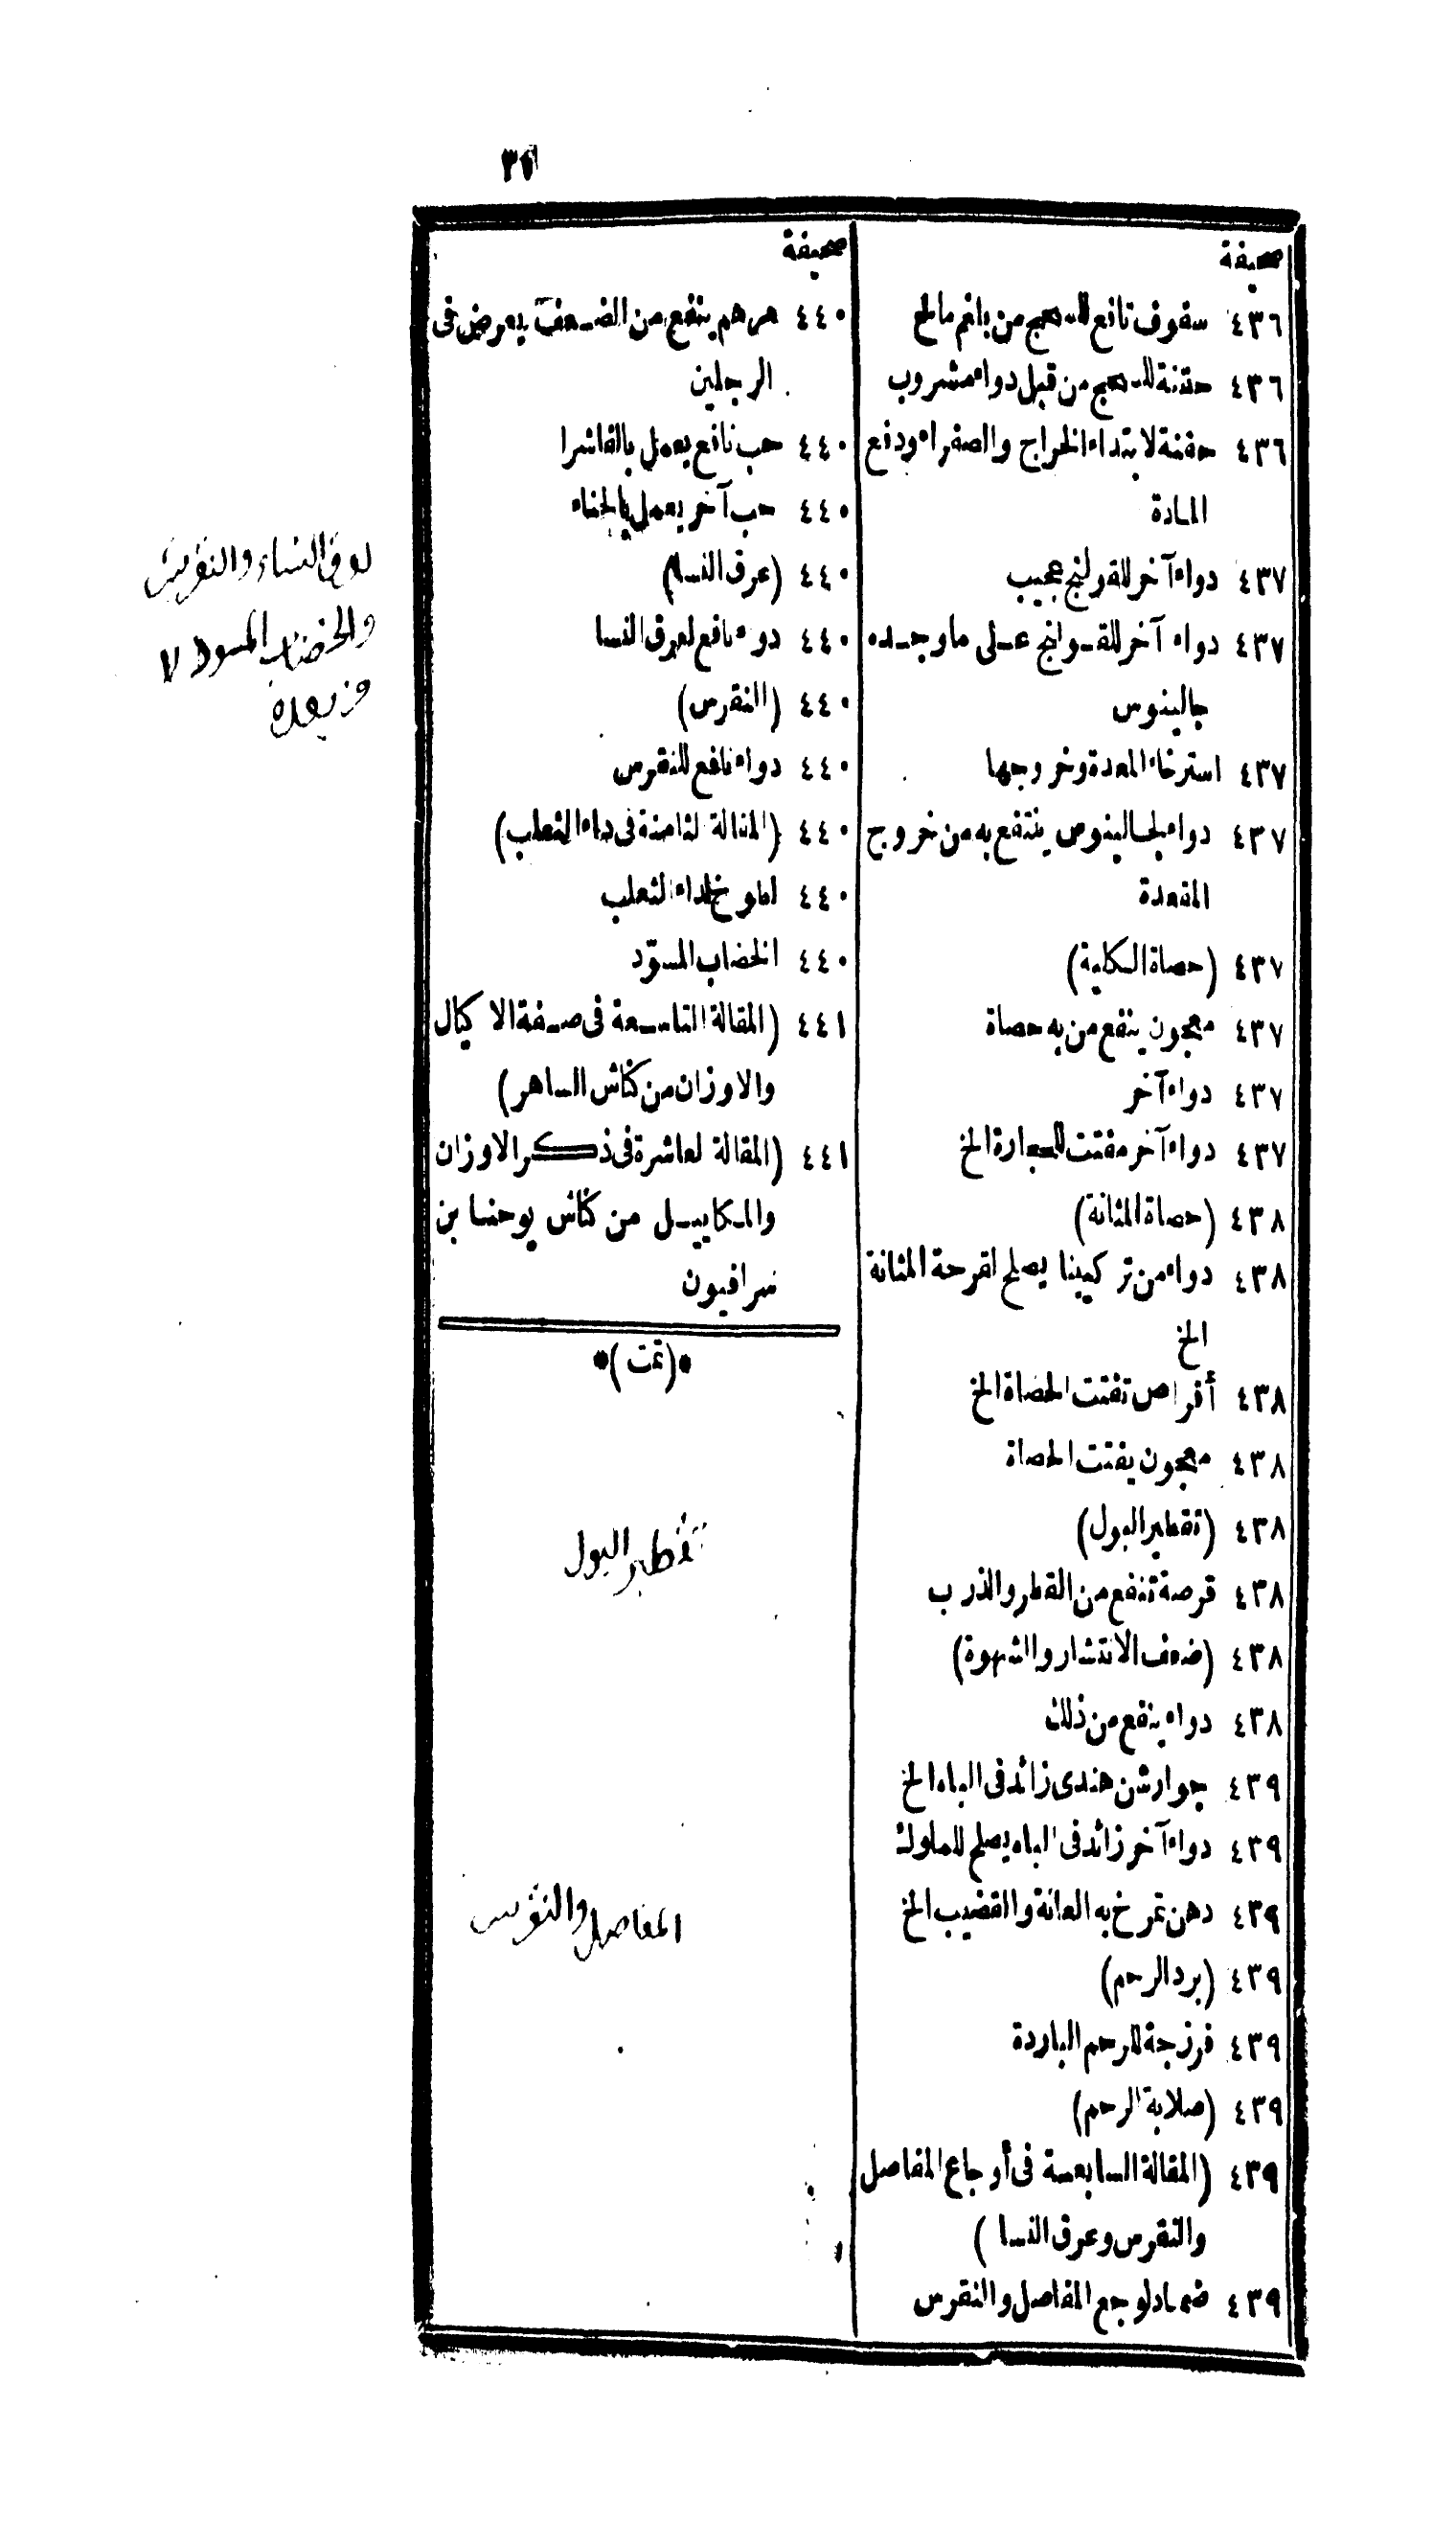 صحيفة
٤٣٦ سفوف نافع للسحج من بلغم مالح
٤٣٦ حقنة للسحج من قبل دواء مشروب
٤٣٦ حقنة لابتداء الخراج والصفراء ودفع
المادة
٤٣٧ دواء آخر للقولنج عجيب
٤٣٧ دواء آخر للقولنج على ما وجده
جالينوس
٤٣٧ استرخاء المعدة وخروجها
٤٣٧ دواء لجالينوس ينتفع به من خروج
المقعدة
٤٣٧ (حصاة الكلية)
٤٣٧ معجون ينفع من به حصاة
٤٣٧ دواء آخر
٤٣٧ دواء آخر مفتت للحجارة الخ
٤٣٨ (حصاة المثانة)
٤٣٨ دواء من تركيبنا يصلح لقرحة المثانة
الخ
٤٣٨ أقراص تفتت الحصاة الخ
٤٣٨ معجون يفتت الحصاة
٤٣٨ (تقطير البول)
٤٣٨ قرصة تنفع من القطر والذرب
٤٣٨ (ضعف الانتشار والشهوة)
٤٣٨ دواء ينفع من ذلك
٤٣٩ جوارشن هندى زائد فى الباه الخ
٤٣٩ دواء آخر زائد فى الباه يصلح للملوك
٤٣٩ دهن تمرخ به العانة والقضيب الخ
٤٣٩ (برد الرحم)
٤٣٩ فرزجة للرحم الباردة
٤٣٩ (صلابة الرحم)
٤٣٩ (المقالة السابعة فى أوجاع المفاصل
والنقرس وعرق النسا)
٤٣٩ ضماد لوجع المفاصل والنقرس
صحيفة
٤٤٠ مرهم ينفع من الضعف يعرض فى
الرجلين
٤٤٠ حب نافع يعمل بالفاشرا
٤٤٠ حب آخر يعمل بالحناء
٤٤٠ (عرق النسا)
٤٤٠ دواء نافع لعرق النسا
٤٤٠ (النقرس)
٤٤٠ دواء نافع للنقرس
٤٤٠ (المقالة الثامنة فى داء الثعلب)
٤٤٠ لطوخ لداء الثعلب
٤٤٠ الخضاب المسوّد
٤٤١ (المقالة التاسعة فى صفة الاكيال
والاوزان من كناش الساهر)
٤٤١ (المقالة العاشرة فى ذكر الاوزان
والمكاييل من كناش يوحنا بن
سرافيون
*(تمت)*
تقطير البول
المفاصل والنقرس
والنقرس
والخضاب المسود